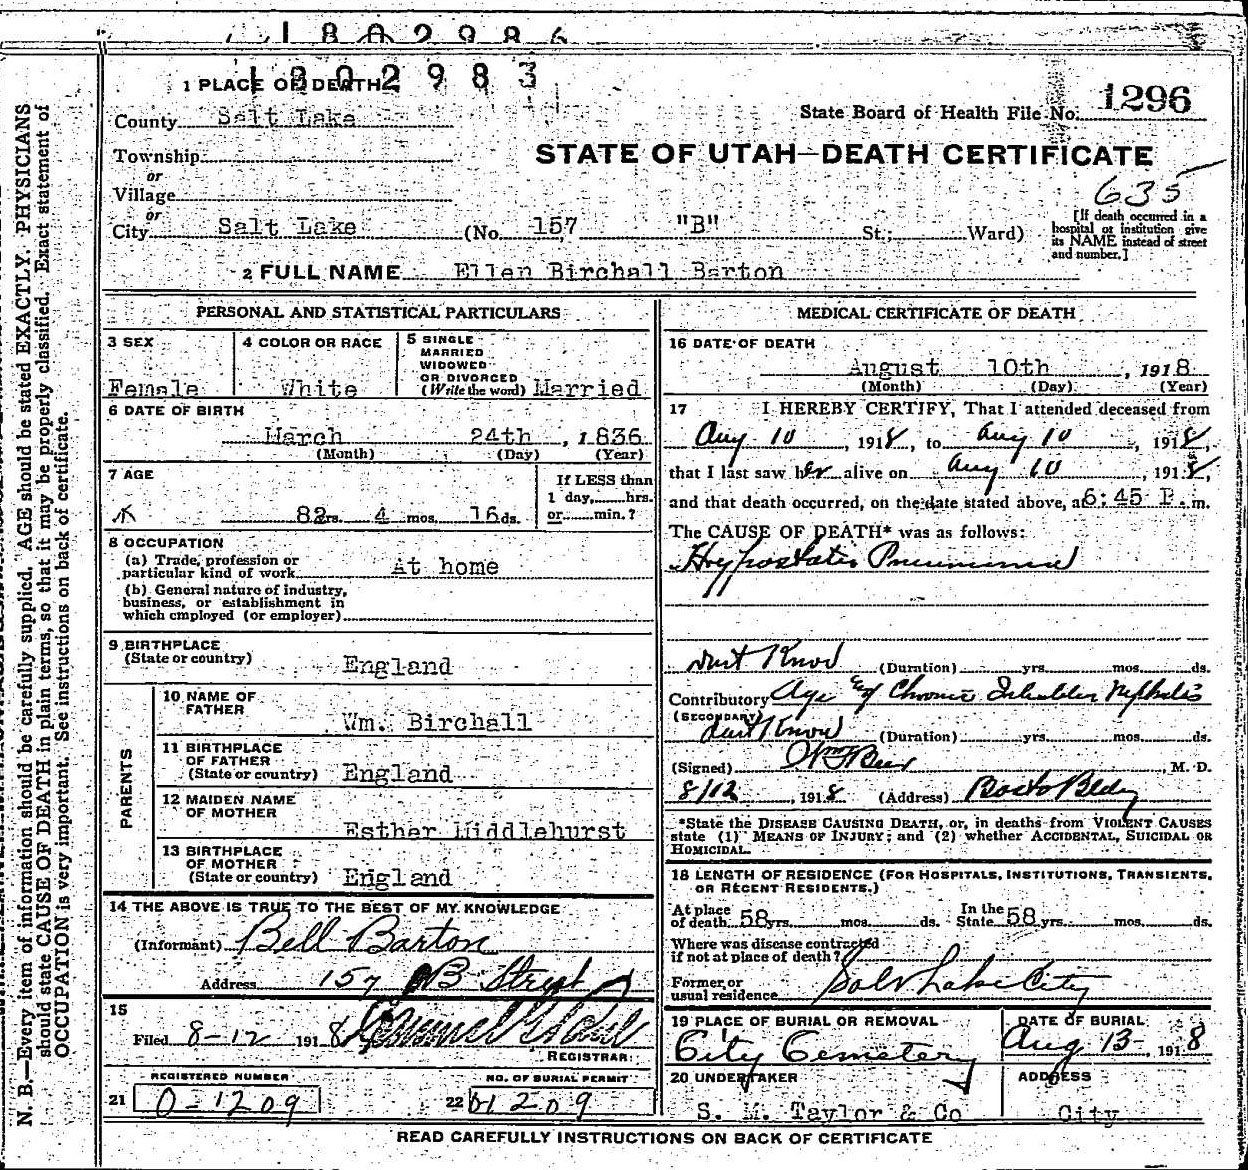 1802986
1802983
1 PLACE OF DEATH
County Salt Lake
State Board of Health File No. 1296
Township
or
Village
or
City Salt Lake (No. 157 "B" St.; Ward)
STATE OF UTAH—DEATH CERTIFICATE
635
[If death occurred in a
hospital or institution give
its NAME instead of street
and number.]
2 FULL NAME Ellen Birchall Barton
PERSONAL AND STATISTICAL PARTICULARS
3 SEX
Female
4 COLOR OR RACE
White
5 SINGLE
MARRIED
WIDOWED
OR DIVORCED
(Write the word) Married
6 DATE OF BIRTH
March 24th, 1836
(Month) (Day) (Year)
7 AGE
82 yrs. 4 mos. 16 ds.
If LESS than
1 day, hrs.
or min.?
8 OCCUPATION
(a) Trade, profession or
particular kind of work At home
(b) General nature of industry,
business, or establishment in
which employed (or employer)
9 BIRTHPLACE
(State or country) England
PARENTS
10 NAME OF
FATHER
Wm. Birchall
11 BIRTHPLACE
OF FATHER
(State or country) England
12 MAIDEN NAME
OF MOTHER
Esther Middlehurst
13 BIRTHPLACE
OF MOTHER
(State or country) England
14 THE ABOVE IS TRUE TO THE BEST OF MY KNOWLEDGE
(Informant) Bell Barton
Address 157 B Street
15
Filed 8-12 1918
REGISTRAR
REGISTERED NUMBER
21 0-1209
NO. OF BURIAL PERMIT
22 01209
MEDICAL CERTIFICATE OF DEATH
16 DATE OF DEATH
August 10th, 1918
(Month) (Day) (Year)
17 I HEREBY CERTIFY, That I attended deceased from
Aug 10, 1918, to Aug 10, 1918,
that I last saw her alive on Aug 10, 1918,
and that death occurred, on the date stated above, at 6:45 P. m.
The CAUSE OF DEATH* was as follows:
Hypostatic Pneumonia
dont Know (Duration) yrs. mos. ds.
Contributory Age & Chronic Nephritis
(SECONDARY)
dont Know (Duration) yrs. mos. ds.
(Signed) M. D.
8/12, 1918 (Address) Boston Bldg
*State the DISEASE CAUSING DEATH, or, in deaths from VIOLENT CAUSES
state (1) MEANS OF INJURY; and (2) whether ACCIDENTAL, SUICIDAL OR
HOMICIDAL.
18 LENGTH OF RESIDENCE (FOR HOSPITALS, INSTITUTIONS, TRANSIENTS,
OR RECENT RESIDENTS,)
At place
of death 58 yrs. mos. ds. In the
State 58 yrs. mos. ds.
Where was disease contracted
if not at place of death?
Former or
usual residence Salt Lake City
19 PLACE OF BURIAL OR REMOVAL
City Cemetery
DATE OF BURIAL
Aug 13, 1918
20 UNDERTAKER
S. M. Taylor & Co
ADDRESS
City
READ CAREFULLY INSTRUCTIONS ON BACK OF CERTIFICATE
N. B.—Every item of information should be carefully supplied. AGE should be stated EXACTLY. PHYSICIANS
should state CAUSE OF DEATH in plain terms, so that it may be properly classified. Exact statement of
OCCUPATION is very important. See instructions on back of certificate.